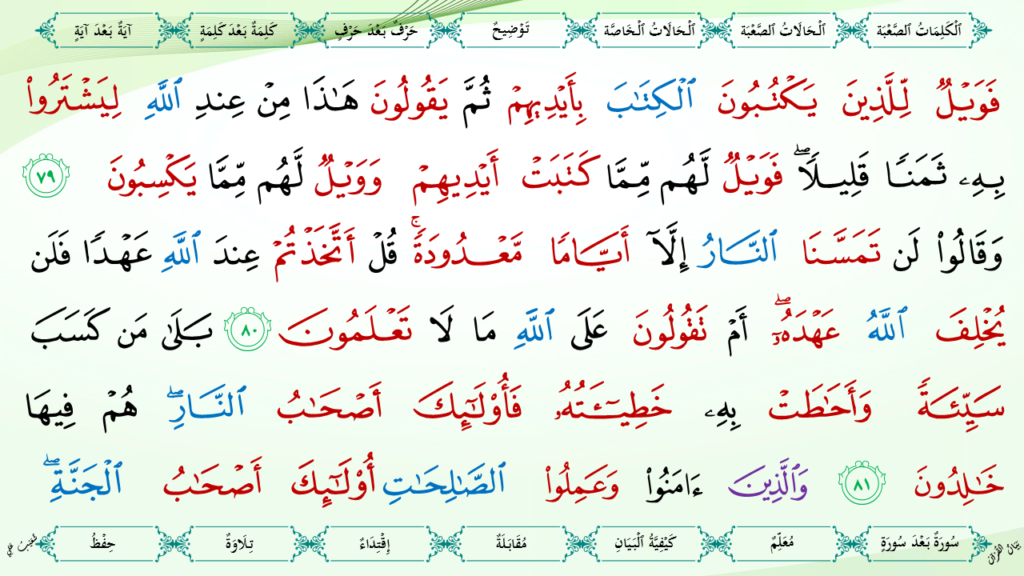 ٱلْكَلِمَاتُ ٱلصَّعْبَة ٱلْحَالَاتُ ٱلصَّعْبَة ٱلْحَالَاتُ ٱلْخَاصَّة تَوْضِيحٌ حَرْفٌ بَعْدَ حَرْفٍ كَلِمَةٌ بَعْدَ كَلِمَةٍ آيَةٌ بَعْدَ آيَةٍ
فَوَيْلٌ لِّلَّذِينَ يَكْتُبُونَ ٱلْكِتَٰبَ بِأَيْدِيهِمْ ثُمَّ يَقُولُونَ هَٰذَا مِنْ عِندِ ٱللَّهِ لِيَشْتَرُوا۟
بِهِۦ ثَمَنًا قَلِيلًا ۖ فَوَيْلٌ لَّهُم مِّمَّا كَتَبَتْ أَيْدِيهِمْ وَوَيْلٌ لَّهُم مِّمَّا يَكْسِبُونَ ٧٩
وَقَالُوا۟ لَن تَمَسَّنَا ٱلنَّارُ إِلَّآ أَيَّامًا مَّعْدُودَةً ۚ قُلْ أَتَّخَذْتُمْ عِندَ ٱللَّهِ عَهْدًا فَلَن
يُخْلِفَ ٱللَّهُ عَهْدَهُۥٓ ۖ أَمْ تَقُولُونَ عَلَى ٱللَّهِ مَا لَا تَعْلَمُونَ ٨٠ بَلَىٰ مَن كَسَبَ
سَيِّئَةً وَأَحَٰطَتْ بِهِۦ خَطِيٓـَٔتُهُۥ فَأُو۟لَٰٓئِكَ أَصْحَٰبُ ٱلنَّارِ ۖ هُمْ فِيهَا
خَٰلِدُونَ ٨١ وَٱلَّذِينَ ءَامَنُوا۟ وَعَمِلُوا۟ ٱلصَّٰلِحَٰتِ أُو۟لَٰٓئِكَ أَصْحَٰبُ ٱلْجَنَّةِ ۖ
سُورَةٌ بَعْدَ سُورَةٍ مُعَلِّمٌ كَيْفِيَّةُ ٱلْبَيَانِ مُقَابَلَةٌ إِقْتِدَاءٌ تِلَاوَةٌ حِفْظٌ